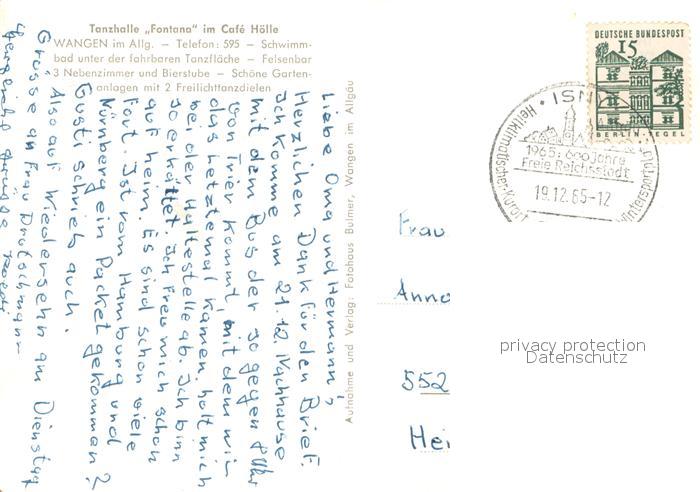 Tanzhalle „Fontana" im Café Hölle
WANGEN im Allg. — Telefon: 595 — Schwimm-
bad unter der fahrbaren Tanzfläche — Felsenbar
3 Nebenzimmer und Bierstube — Schöne Garten-
anlagen mit 2 Freilichttanzdielen
Liebe Oma und Hermann,
Herzlichen Dank für den Brief.
Ich komme am 21.12. Nachhause
mit dem Bus der so gegen 8 Uhr
von Trier kommt, mit dem wir
das letztemal kamen, holt mich
bei der Haltestelle ab. Ich bin
so erkältet. Ich freu mich schon
auf heim. Es sind schon viele
fort. Ist vom Hamburg und
Nürnberg ein Packet gekomman?
Gusti schrieb auch.
Also auf Wiedersehn am Dienstag
Grüsse an Frau
Aufnahme und Verlag: Fotohaus Bulmer, Wangen im Allgäu
DEUTSCHE BUNDESPOST
15
BERLIN-TEGEL
ISN
Heilklimatischer Kurort
Wintersportpl
1965: 600 Jahre
Freie Reichsstadt
19.12.65-12
Frau
Anna
552
Hei
privacy protection
Datenschutz